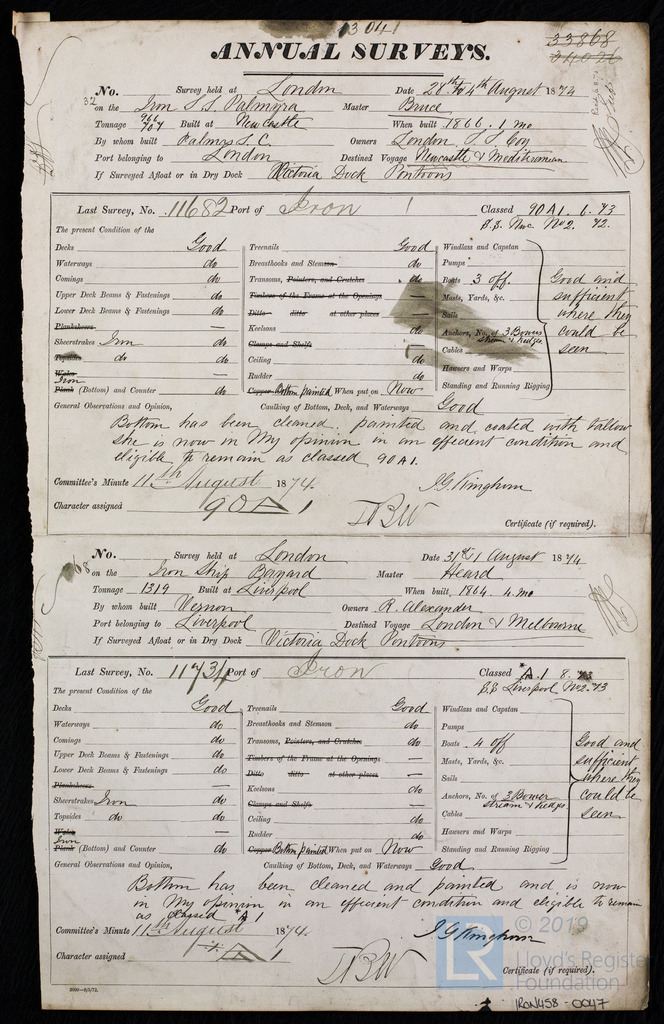 13041
33868
34026
ANNUAL SURVEYS.
No. 32 Survey held at London Date 28th to 4th August 1874
on the Iron S.S. Palmyra Master Bruce
Tonnage 966 707 Built at Newcastle When built 1866. 1 mo
By whom built Palmers S.C. Owners London S.S. Coy
Port belonging to London Destined Voyage Newcastle & Mediterranean
If Surveyed Afloat or in Dry Dock Victoria Dock Pontoons
Last Survey, No. 11682 Port of Iron Classed 90A1. 6. 73
B.S. Nwc No2. 72.
The present Condition of the
Decks Good Treenails Good Windlass and Capstan
Waterways do Breasthooks and Stemson do Pumps
Comings do Transoms, Pointers, and Crutches do Boats 3 off. Good and
Upper Deck Beams & Fastenings do Timbers of the Frame at the Openings — Masts, Yards, &c. sufficient
Lower Deck Beams & Fastenings do Ditto ditto at other places — Sails where they
Plankshears — Keelsons do Anchors, No. of 3 Bowers Stream & kedge could be
Sheerstrakes Iron do Clamps and Shelfs — Cables seen
Topsides do do Ceiling do Hawsers and Warps
Wales — Rudder do Standing and Running Rigging
Iron Plank (Bottom) and Counter do Copper Bottom painted When put on Now
General Observations and Opinion, Caulking of Bottom, Deck, and Waterways Good
Bottom has been cleaned painted and coated with tallow
she is now in My opinion in an effecient condition and
eligible to remain as classed 90 A1.
Committee's Minute 11th August 1874. J.G. Kinghorn
Character assigned 90A1
Certificate (if required).
No. 68 Survey held at London Date 31st & 1 August 1874
on the Iron Ship Bayard Master Heard
Tonnage 1319 Built at Liverpool When built, 1864. 4 mo
By whom built Vernon Owners R. Alexander
Port belonging to Liverpool Destined Voyage London & Melbourne
If Surveyed Afloat or in Dry Dock Victoria Dock Pontoons
Last Survey, No. 11734 Port of Iron Classed *A.1 8. 73
B.S Liverpool No2. 73
The present Condition of the
Decks Good Treenails Good Windlass and Capstan
Waterways do Breasthooks and Stemson do Pumps
Comings do Transoms, Pointers, and Crutches do Boats 4 off Good and
Upper Deck Beams & Fastenings do Timbers of the Frame at the Openings — Masts, Yards, &c. sufficient
Lower Deck Beams & Fastenings do Ditto ditto at other places — Sails where they
Plankshears — Keelsons do Anchors, No. of 3 Bower stream & kedge could be
Sheerstrakes Iron do Clamps and Shelfs — Cables seen
Topsides do do Ceiling do Hawsers and Warps
Wales — Rudder do Standing and Running Rigging
Iron Plank (Bottom) and Counter do Copper Bottom painted When put on Now
General Observations and Opinion, Caulking of Bottom, Deck, and Waterways Good
Bottom has been cleaned and painted and is now
in My opinion in an effecient condition and eligible to remain
as classed *A 1
Committee's Minute 11th August 1874. J G Kinghorn
Character assigned *A 1
Certificate (if required).
2000—8/5/72.
LR © 2019
Lloyd's Register
Foundation
IRON458-0047